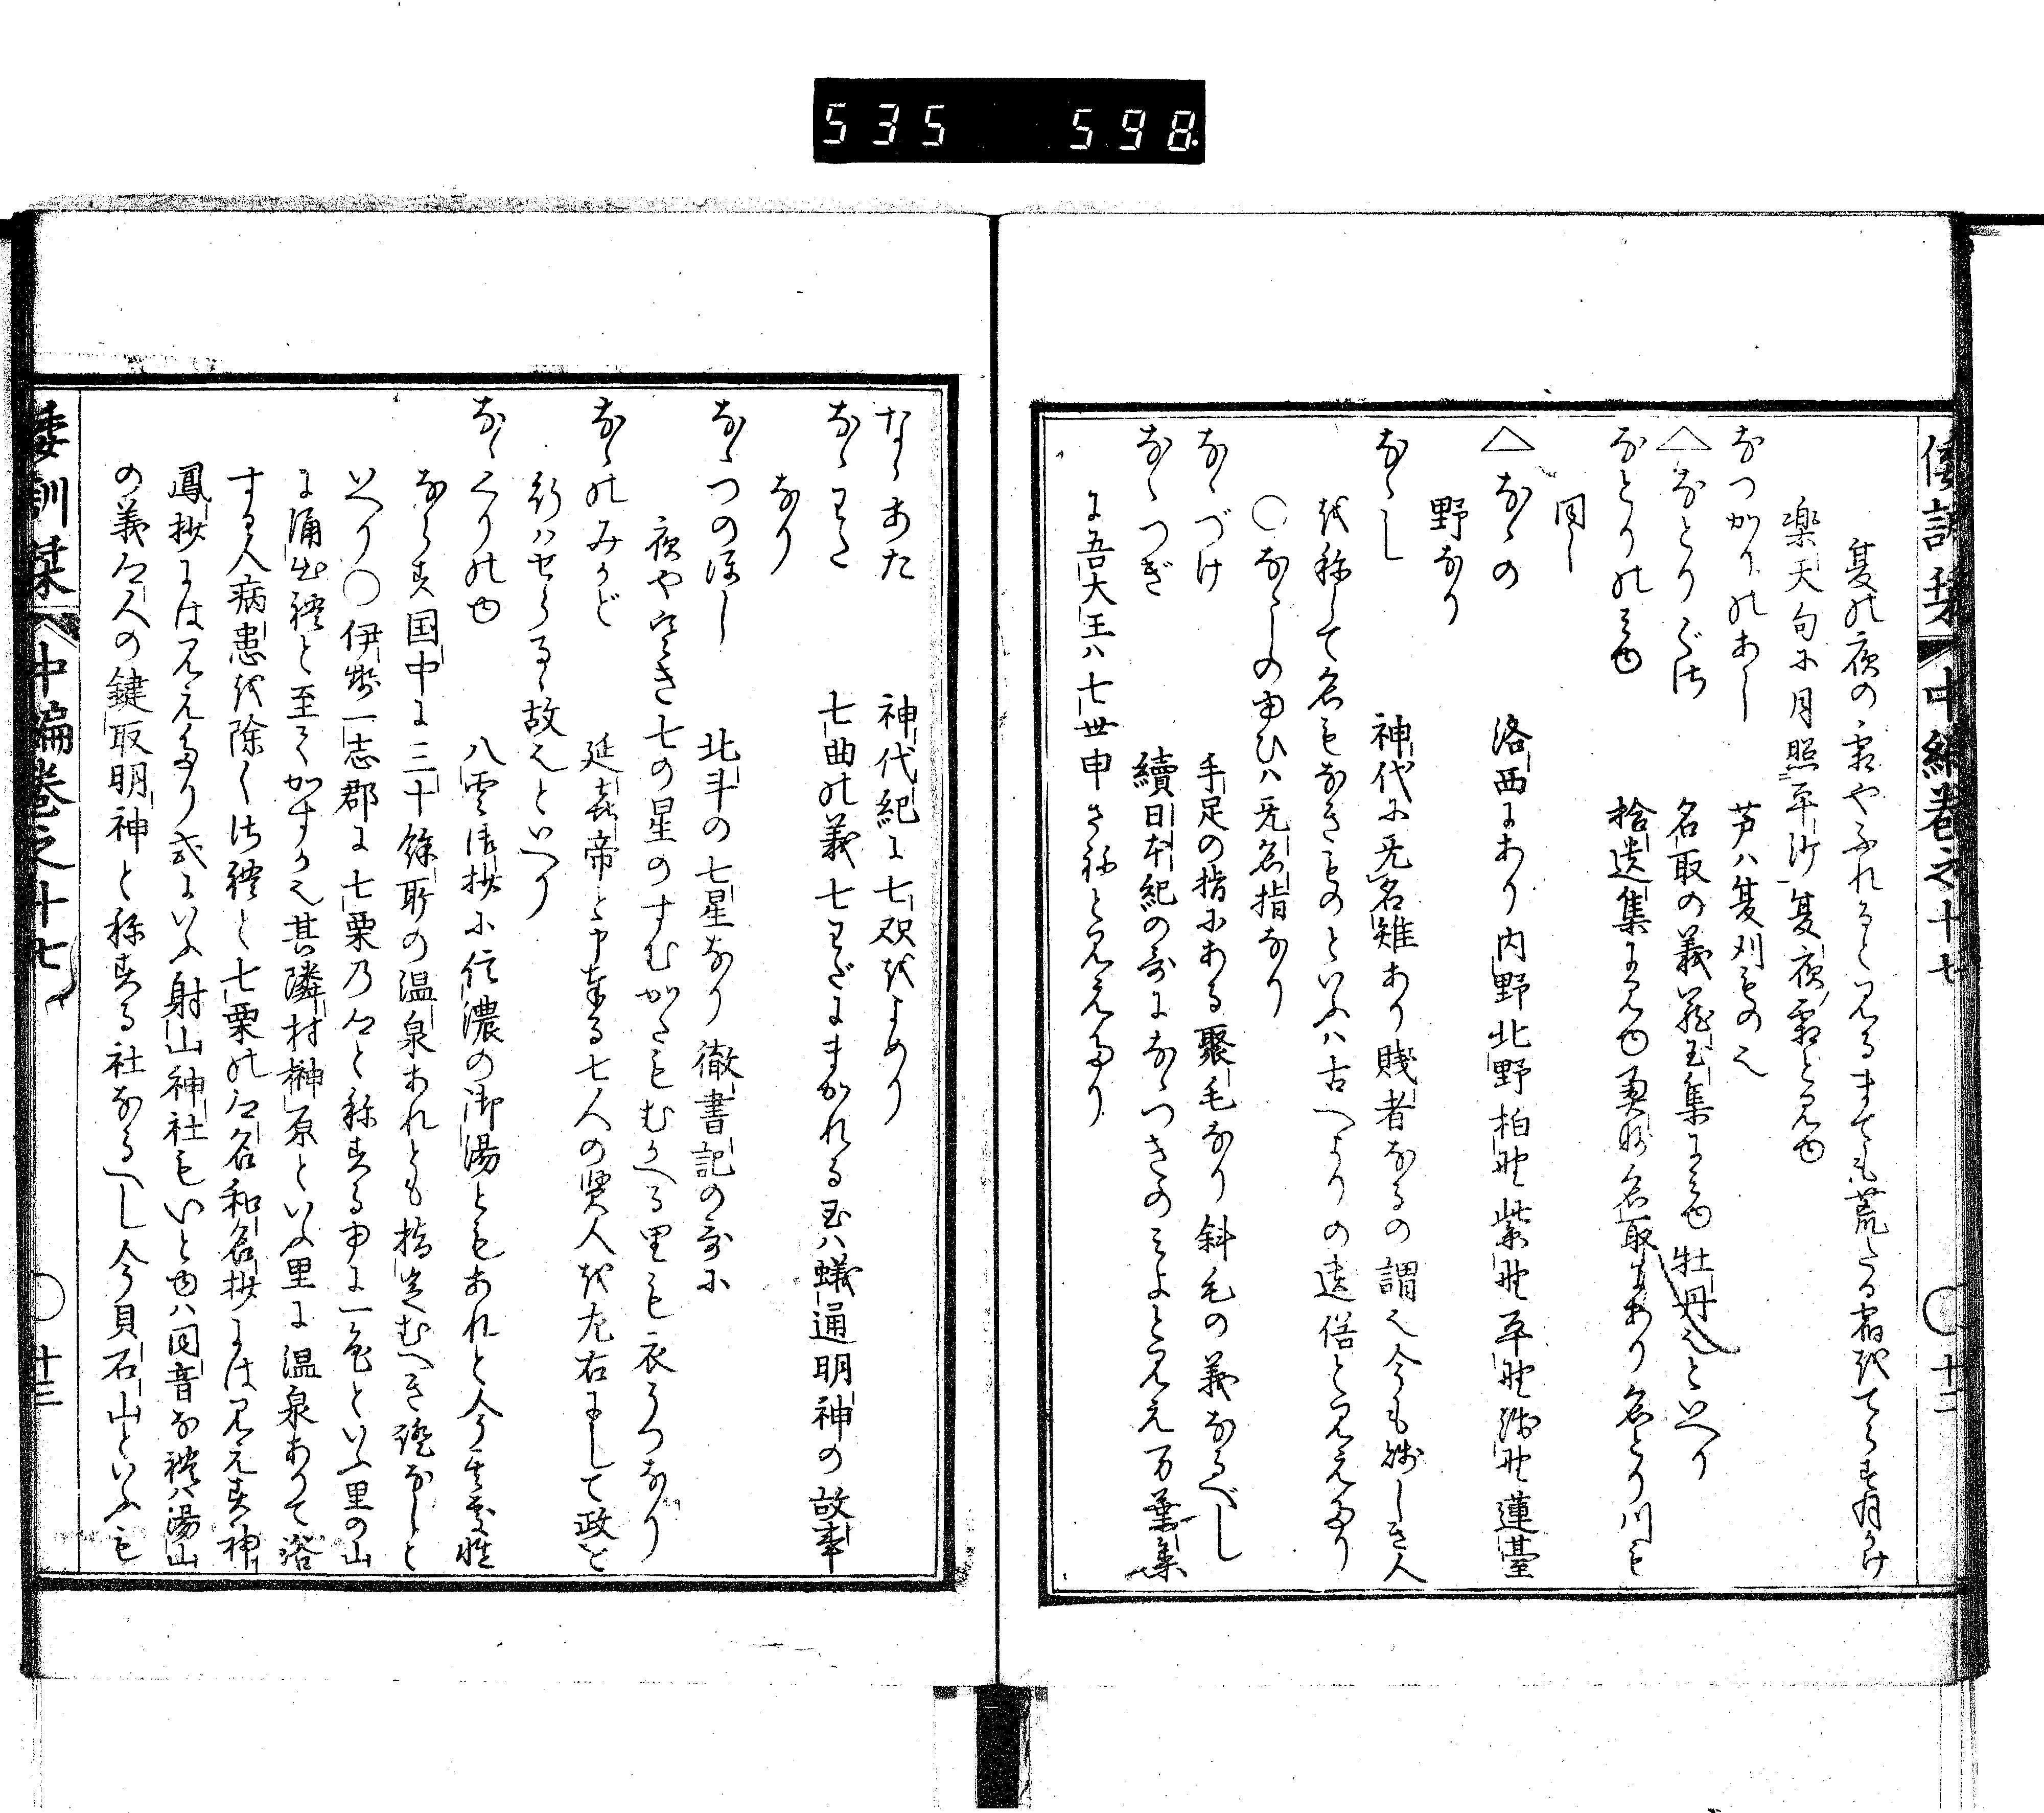 535 598
倭訓栞 中編巻之十七 ○十二
夏の夜の霜やふれると見るまても荒たる宿をてらす月かけ
楽天句に月照平沙夏夜霜と見ゆ
なつかりのあし 芦ハ夏刈もの也
△なとりぐさ 名取の義蔵玉集にみゆ牡丹也といへり
なとりのみゆ 拾遺集に見ゆ奥州名取郡あり名とり川も
同し
△なゝの 洛西にあり内野北野柏野紫野平野浅野蓮臺
野なり
なゝし 神代に无名雉あり賤者なるの謂也今も賤しき人
を称して名もなきものといふハ古へよりの遺俗と見えたり
○なゝしのゆひハ无名指なり
なゝづけ 手足の指にある聚毛なり斜毛の義なるべし
なゝつぎ 續日本紀の哥になゝつきのみよと見え万葉集
に吾大王ハ七世申さねと見えたり
なゝあた 神代紀に七咫をよめり
なゝわた 七曲の義七わだにまがれる玉ハ蟻通明神の故事
なり
なゝつのほし 北斗の七星なり徹書記の哥に
夜や寒き七の星のすむかたもむかへる里も衣うつなり
なゝのみかど 延喜帝と申奉る七人の賢人を左右にして政を
行ハせらるゝ故也といへり
なゝくりのゆ 八雲御抄に信濃の御湯ともあれと今其処慥
ならす国中に三十餘所の温泉あれとも指定むへき證なしと
いへり○伊勢一志郡に七栗乃名と称する中に一色といふ里の山
に涌出れと至てかすか也其隣村榊原といふ里に温泉ありて浴
する人病患を除くされと七栗の名和名抄には見えす神
鳳抄には見えたり式にいふ射山神社もいとゆハ同音なれハ湯山
の義也人の鍵取明神と称する社なるへし今貝石山といふも
倭訓栞 中編巻之十七 ○十三